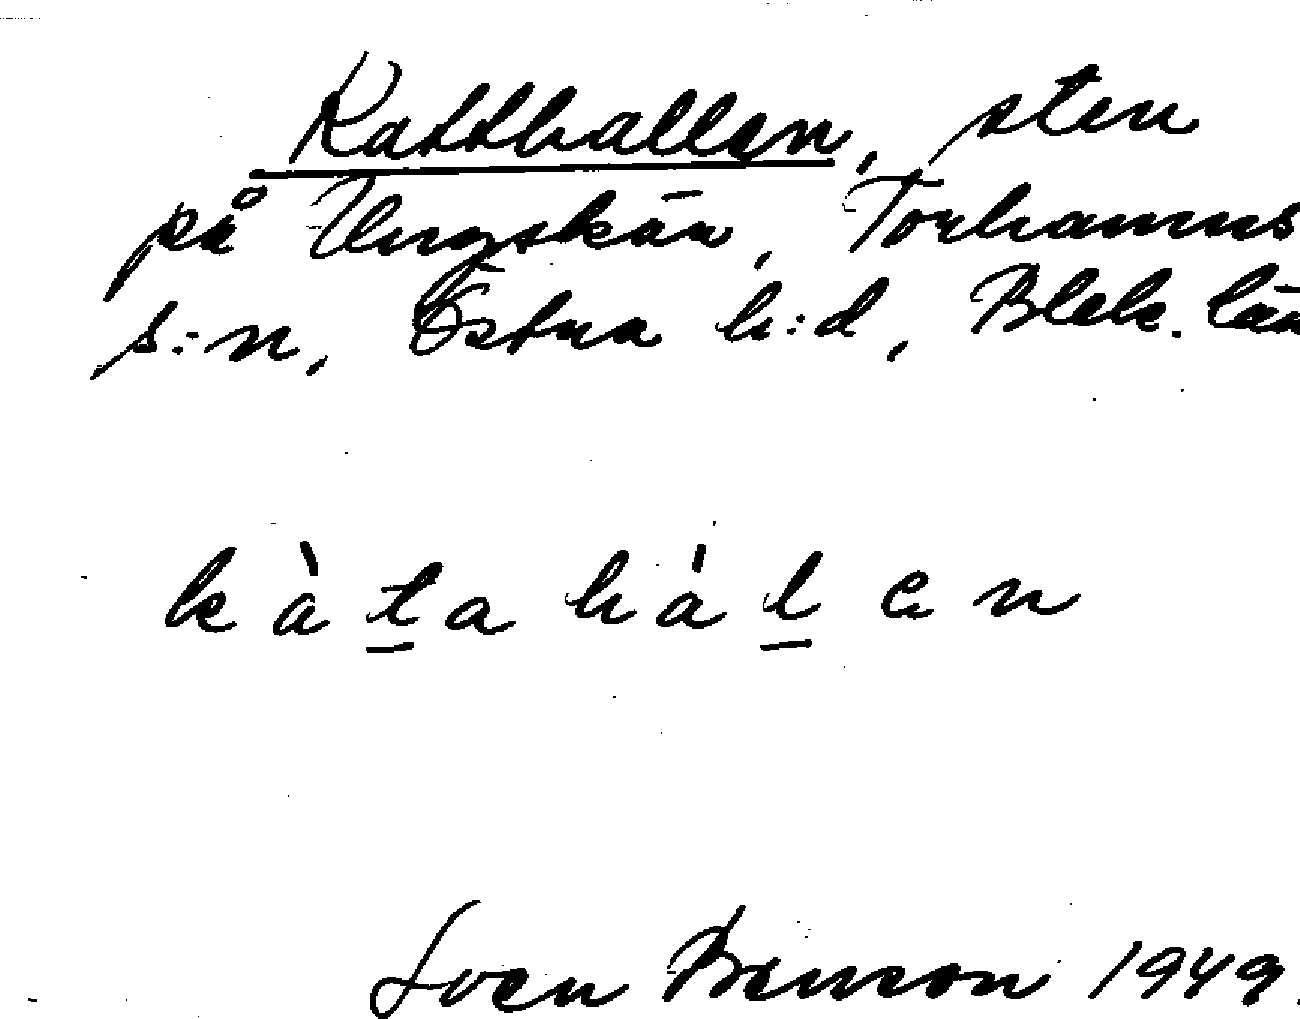 Katthallen, sten
på Ungskär, Torhamns
s:n, Östra h:d, Blek. län
k à t a h á l e n
Sven Benson 1949.